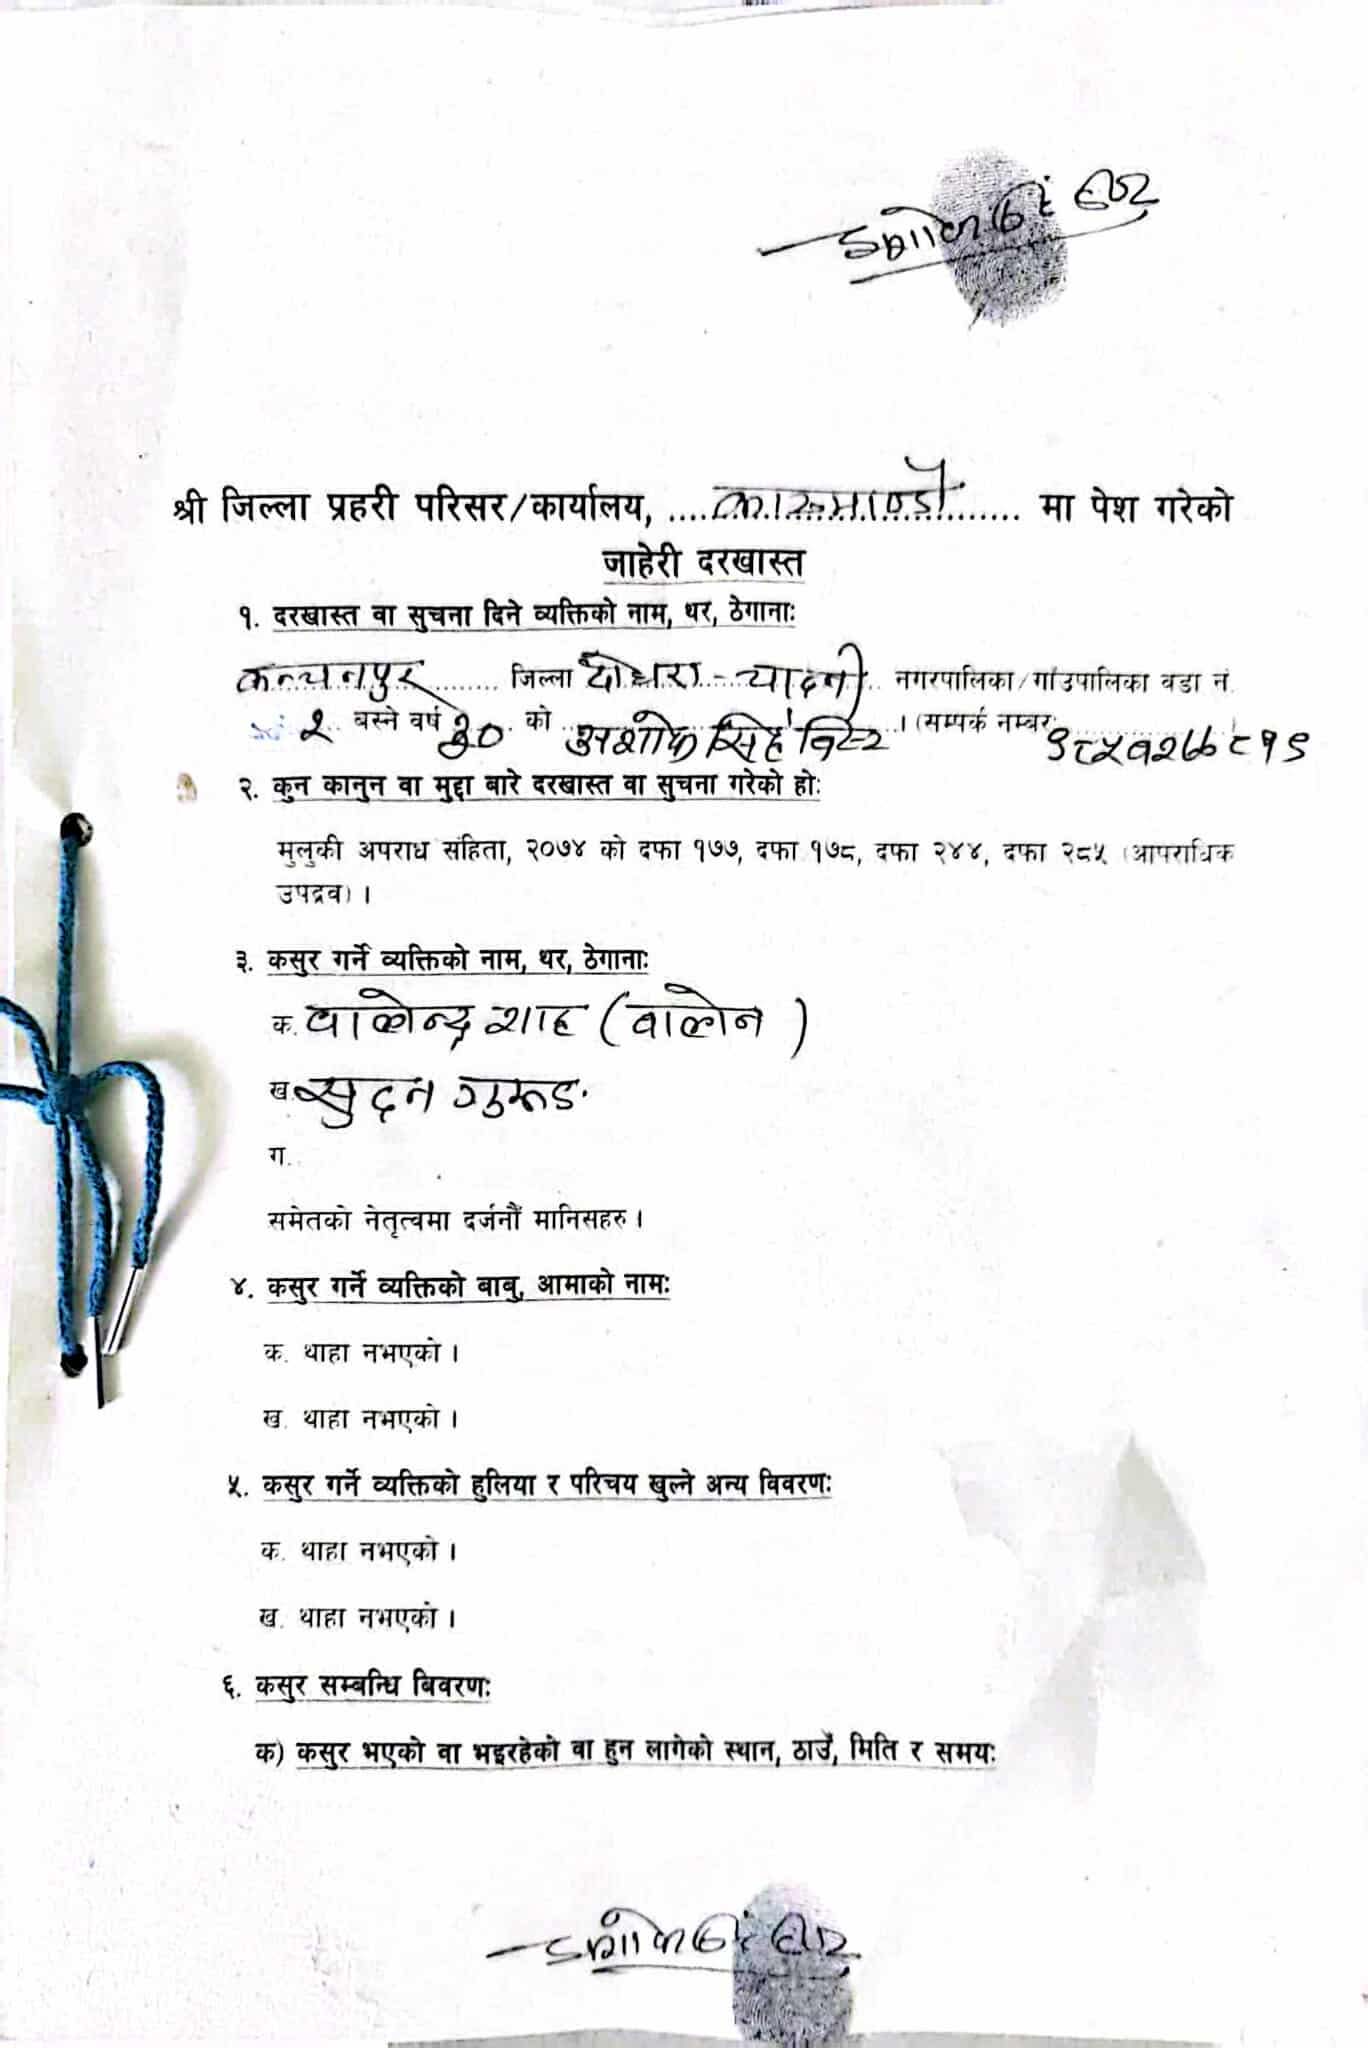 श्री जिल्ला प्रहरी परिसर/कार्यालय, ....काठमाण्डौ...... मा पेश गरेको
जाहेरी दरखास्त
१. दरखास्त वा सुचना दिने व्यक्तिको नाम, थर, ठेगानाः
कन्चनपुर ........ जिल्ला दोधारा - चादनी .. नगरपालिका/गाउपालिका वडा नं.
२ बस्ने वर्ष ३० को अशोक सिंह विष्ट । (सम्पर्क नम्बर ९८५१२७७८१९
२. कुन कानुन वा मुद्दा बारे दरखास्त वा सुचना गरेको होः
मुलुकी अपराध संहिता, २०७४ को दफा १७७, दफा १७८, दफा २४४, दफा २८५ (आपराधिक
उपद्रव) ।
३. कसुर गर्ने व्यक्तिको नाम, थर, ठेगानाः
क. वालेन्द्र शाह (वालेन)
ख. सुदन गुरुङ.
ग.
समेतको नेतृत्वमा दर्जनौं मानिसहरु ।
४. कसुर गर्ने व्यक्तिको बाबु, आमाको नामः
क. थाहा नभएको ।
ख. थाहा नभएको ।
५. कसुर गर्ने व्यक्तिको हुलिया र परिचय खुल्ने अन्य विवरणः
क. थाहा नभएको ।
ख. थाहा नभएको ।
६. कसुर सम्बन्धि विवरणः
क) कसुर भएको वा भइरहेको वा हुन लागेको स्थान, ठाउँ, मिति र समयः